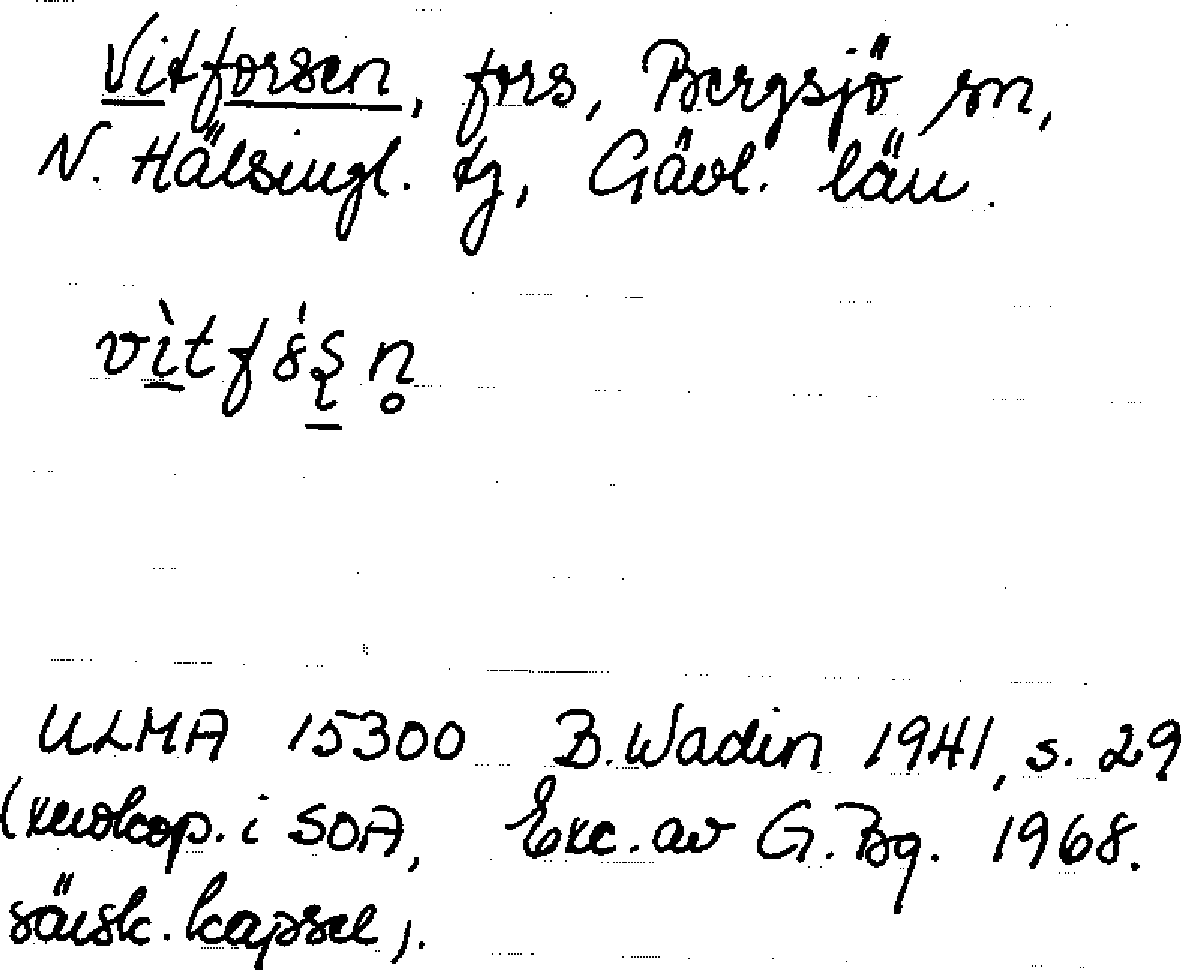 Vitforsen, fors, Bergsjö sn,
N. Hälsingl. tg, Gävl. län.
vìtf
ULMA 15300 B. Wadin 1941, s. 29
(xerokop. i SOA, Exc. av G. Bg. 1968.
särsk. kapsel).